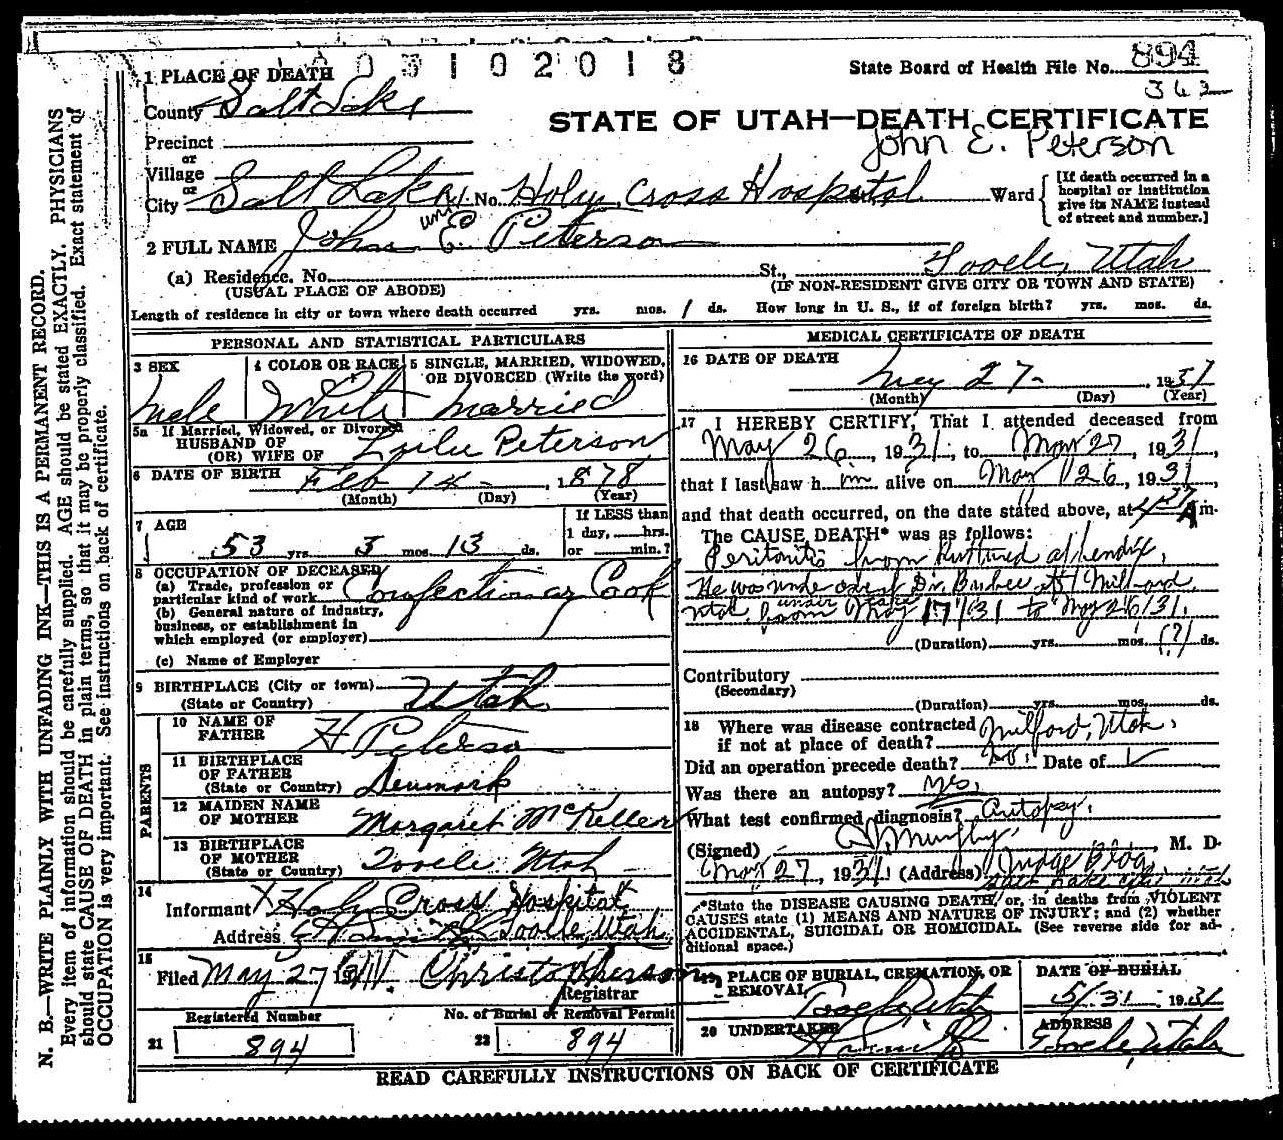 0 3 1 0 2 0 1 8
State Board of Health File No. 894
362
1 PLACE OF DEATH
County Salt Lake
STATE OF UTAH—DEATH CERTIFICATE
John E. Peterson
Precinct
or
Village
or
City Salt Lake No. Holy Cross Hospital Ward
[If death occurred in a
hospital or institution
give its NAME instead
of street and number.]
2 FULL NAME John E. Peterson
(a) Residence. No. St., Tooele, Utah
(USUAL PLACE OF ABODE) (IF NON-RESIDENT GIVE CITY OR TOWN AND STATE)
Length of residence in city or town where death occurred yrs. mos. 1 ds. How long in U. S., if of foreign birth? yrs. mos. ds.
PERSONAL AND STATISTICAL PARTICULARS
3 SEX
Male
4 COLOR OR RACE
White
5 SINGLE, MARRIED, WIDOWED,
OR DIVORCED (Write the word)
Married
5a If Married, Widowed, or Divorced
HUSBAND OF
(OR) WIFE OF Peterson
6 DATE OF BIRTH Feb 14 - , 1878
(Month) (Day) (Year)
7 AGE
53 yrs. 3 mos. 13 ds.
If LESS than
1 day,......hrs.
or ......min.?
8 OCCUPATION OF DECEASED
(a) Trade, profession or
particular kind of work Confectionary Cook
(b) General nature of industry,
business, or establishment in
which employed (or employer)
(c) Name of Employer
9 BIRTHPLACE (City or town)
(State or Country) Utah
PARENTS
10 NAME OF
FATHER H Peterson
11 BIRTHPLACE
OF FATHER
(State or Country) Denmark
12 MAIDEN NAME
OF MOTHER Margaret McKeller
13 BIRTHPLACE
OF MOTHER
(State or Country) Tooele Utah
14
Informant X Holy Cross Hospital
Address Tooele, Utah
15
Filed May 27 1931 Christopherson
Registrar
Registered Number
21 894
No. of Burial or Removal Permit
22 894
MEDICAL CERTIFICATE OF DEATH
16 DATE OF DEATH
May 27 - , 1931
(Month) (Day) (Year)
17 I HEREBY CERTIFY, That I attended deceased from
May 26, 1931, to May 27, 1931,
that I last saw him alive on May 26, 1931,
and that death occurred, on the date stated above, at A m.
The CAUSE DEATH* was as follows:
Peritonitis from Ruptured appendix,
He was under care of Dr. of Milford
Utah from May 17/31 to May 26/31.
(Duration) yrs. mos. (?) ds.
Contributory
(Secondary)
(Duration) yrs. mos. ds.
18 Where was disease contracted
if not at place of death? Milford, Utah.
Did an operation precede death? No. Date of
Was there an autopsy? Yes.
What test confirmed diagnosis? Autopsy.
(Signed) Murphy, M. D.
May 27, 1931 (Address) Judge Bldg
Salt Lake City Utah
*State the DISEASE CAUSING DEATH, or, in deaths from VIOLENT
CAUSES state (1) MEANS AND NATURE OF INJURY; and (2) whether
ACCIDENTAL, SUICIDAL OR HOMICIDAL. (See reverse side for ad-
ditional space.)
19 PLACE OF BURIAL, CREMATION, OR
REMOVAL
Tooele Utah
DATE OF BURIAL
5/31 1931
20 UNDERTAKER
ADDRESS
Tooele, Utah
READ CAREFULLY INSTRUCTIONS ON BACK OF CERTIFICATE
N. B.—WRITE PLAINLY WITH UNFADING INK—THIS IS A PERMANENT RECORD.
Every item of information should be carefully supplied. AGE should be stated EXACTLY. PHYSICIANS
should state CAUSE OF DEATH in plain terms, so that it may be properly classified. Exact statement of
OCCUPATION is very important. See instructions on back of certificate.